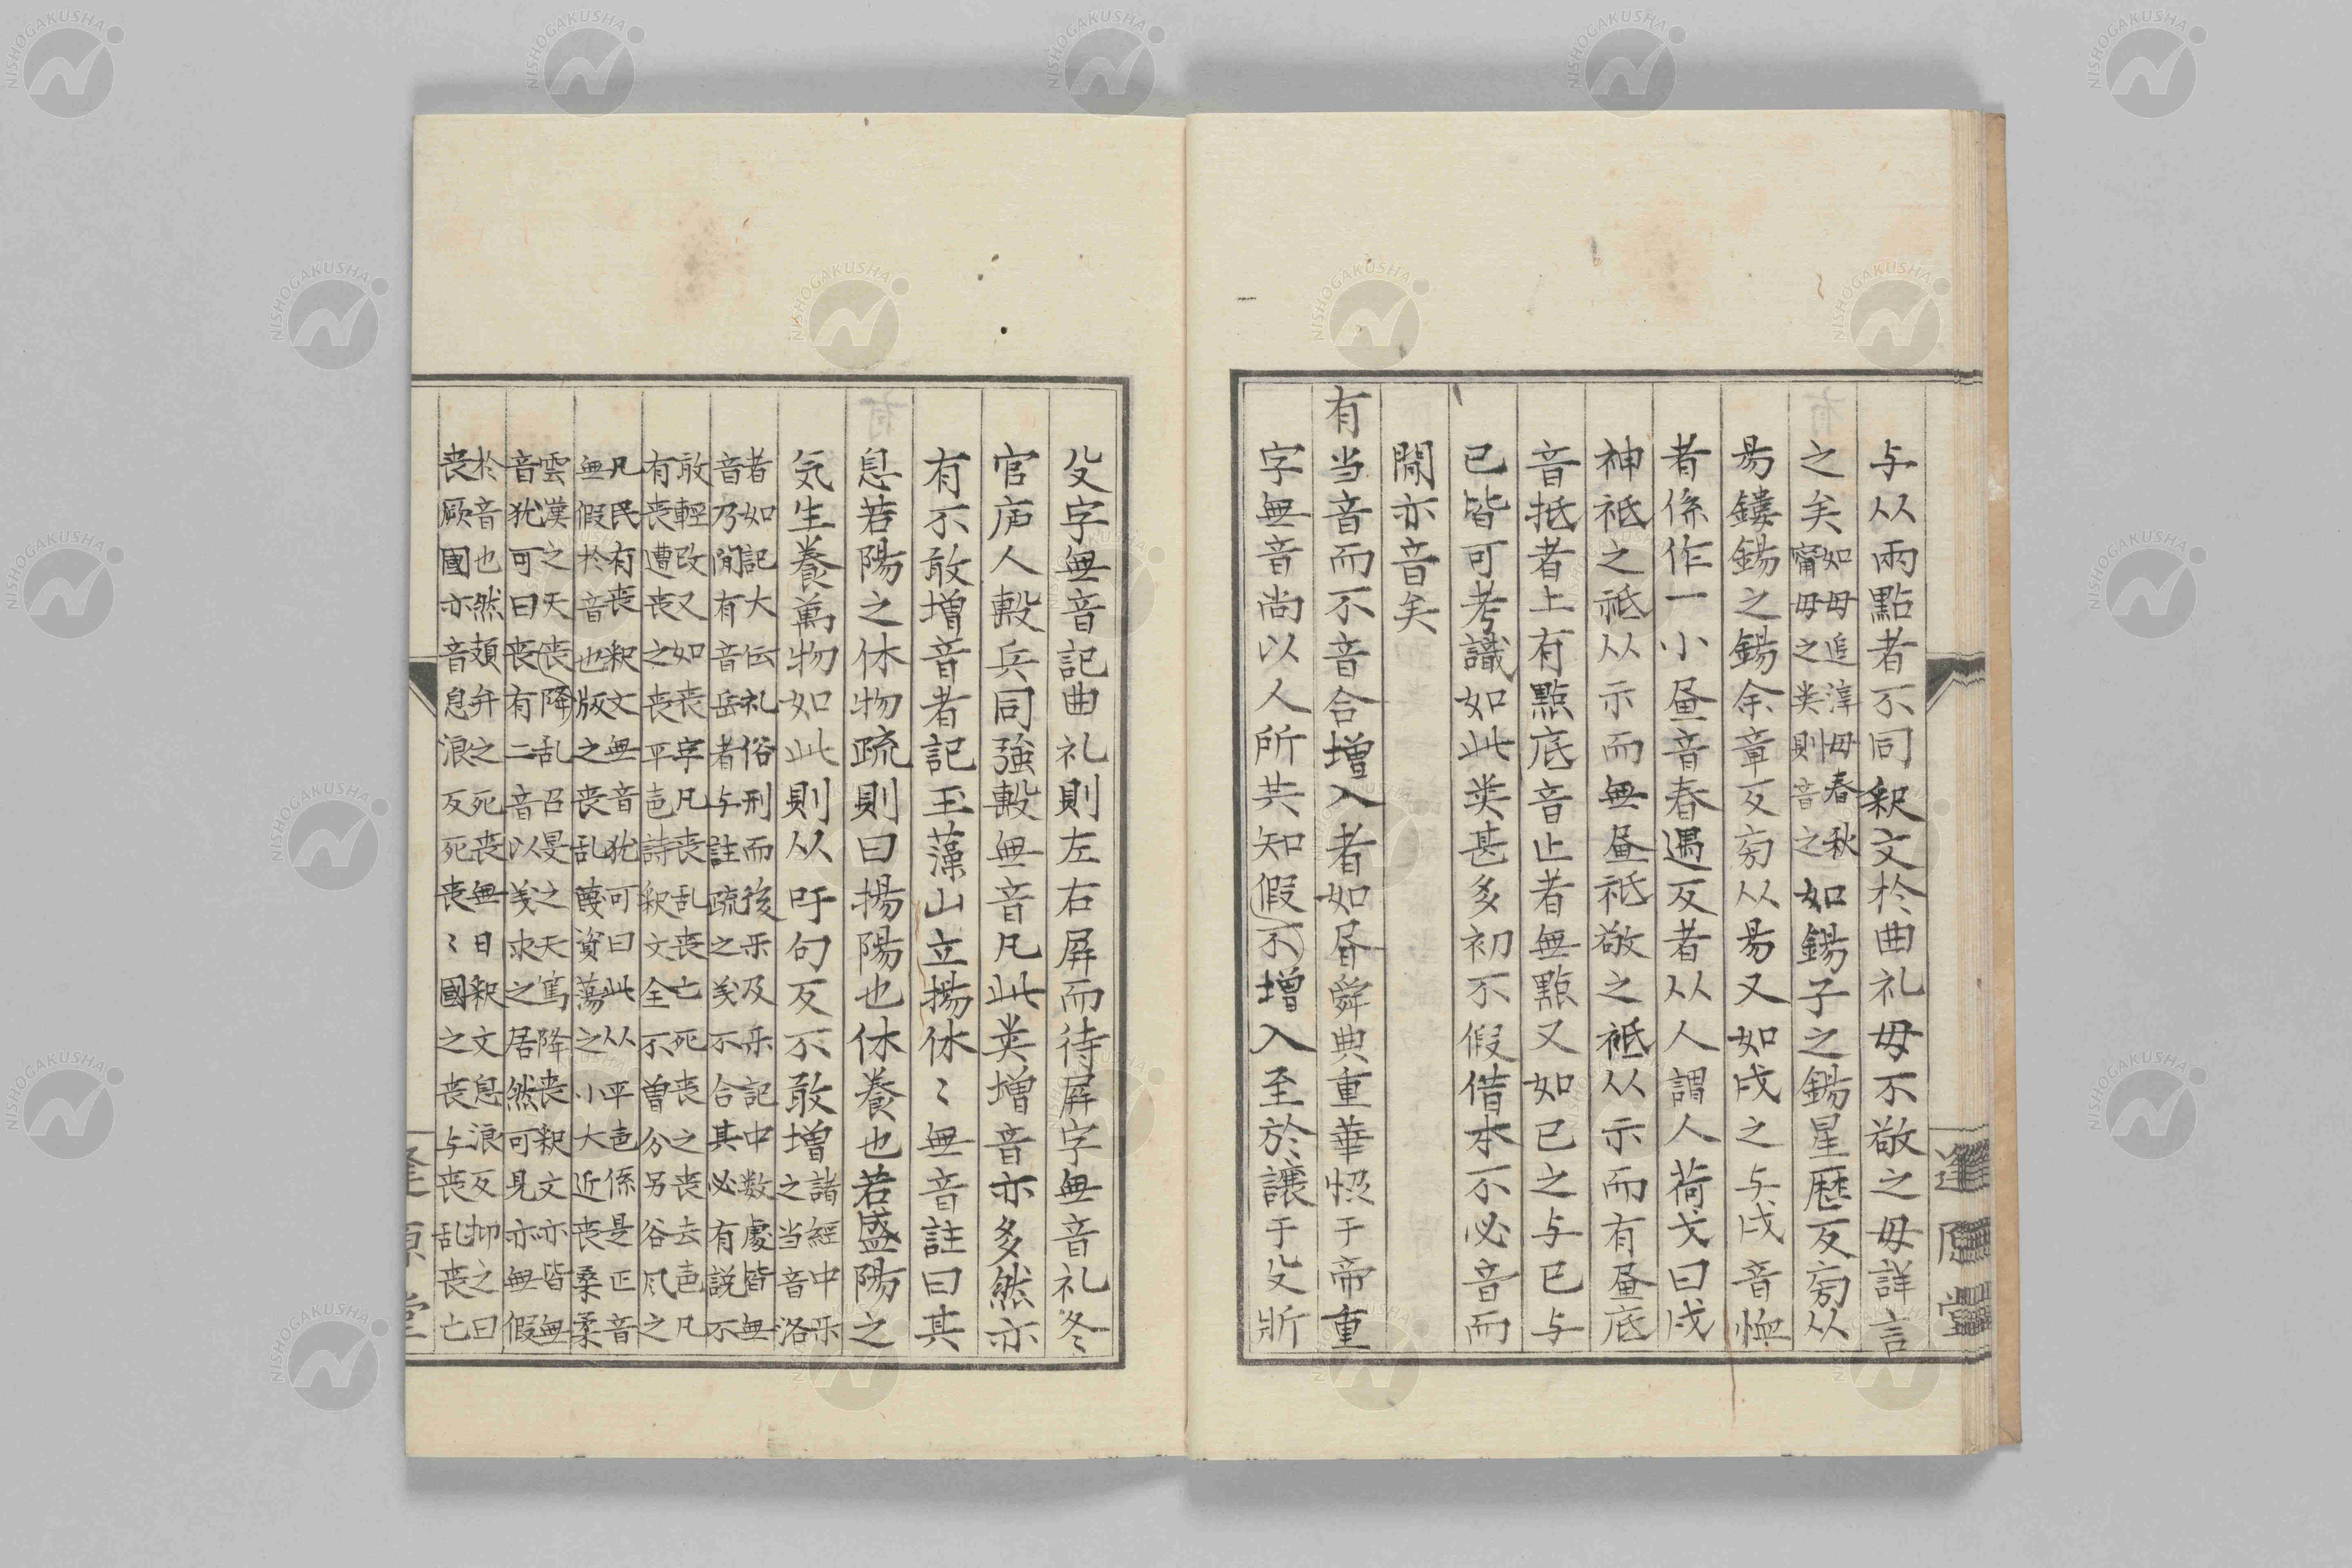 与从兩點者不同釈文於曲礼毋不敬之毋詳言
之矣如毋追淳毋春秋甯毋之类則音之如鍚子之鍚星歴反旁从
昜鏤鍚之鍚余章反旁从昜又如戍之与戌音恤
者係作一小畫音春遇反者从人謂人荷戈曰戍
神祗之祇从示而無畫祗敬之袛从示而有畫底
音抵者上有點底音止者無點又如已之与巳与
已皆可考識如此类甚多初不假借本不必音而
間亦音矣
有当音而不音合增入者如昏舜典重華恊于帝重
字無音尚以人所共知假不增入至於讓于殳斨
殳字無音記曲礼則左右屏而待屏字無音礼冬
官庐人轂兵同強轂無音凡此类增音亦多然亦
有不敢增音者記玉藻山立揚休〻無音註曰其
息若陽之休物疏則曰揚陽也休養也若盛陽之
気生養萬物如此則从吁句反不敢增諸經中乐之当音洛
者如記大伝礼俗刑而後乐及乐記中数處皆無
音乃間有音岳者与註疏之义不合其必有説不
敢輕改又如丧字凡丧乱丧亡死丧之丧去声凡
有丧遭丧之丧平声詩釈文全不曾分另谷風之
凡民有丧釈文無音犹可曰此从平声係是正音
無假於音也版之丧乱蔑資蕩之小大近丧桑柔
雲漢之天丧降乱召旻之天篤降丧釈文亦皆無
音犹可曰丧有二音以义求之居然可見亦無假
於音也然頍弁之死丧無日釈文息浪反抑之曰
丧厥國亦音息浪反死丧〻國之丧与丧乱丧亡